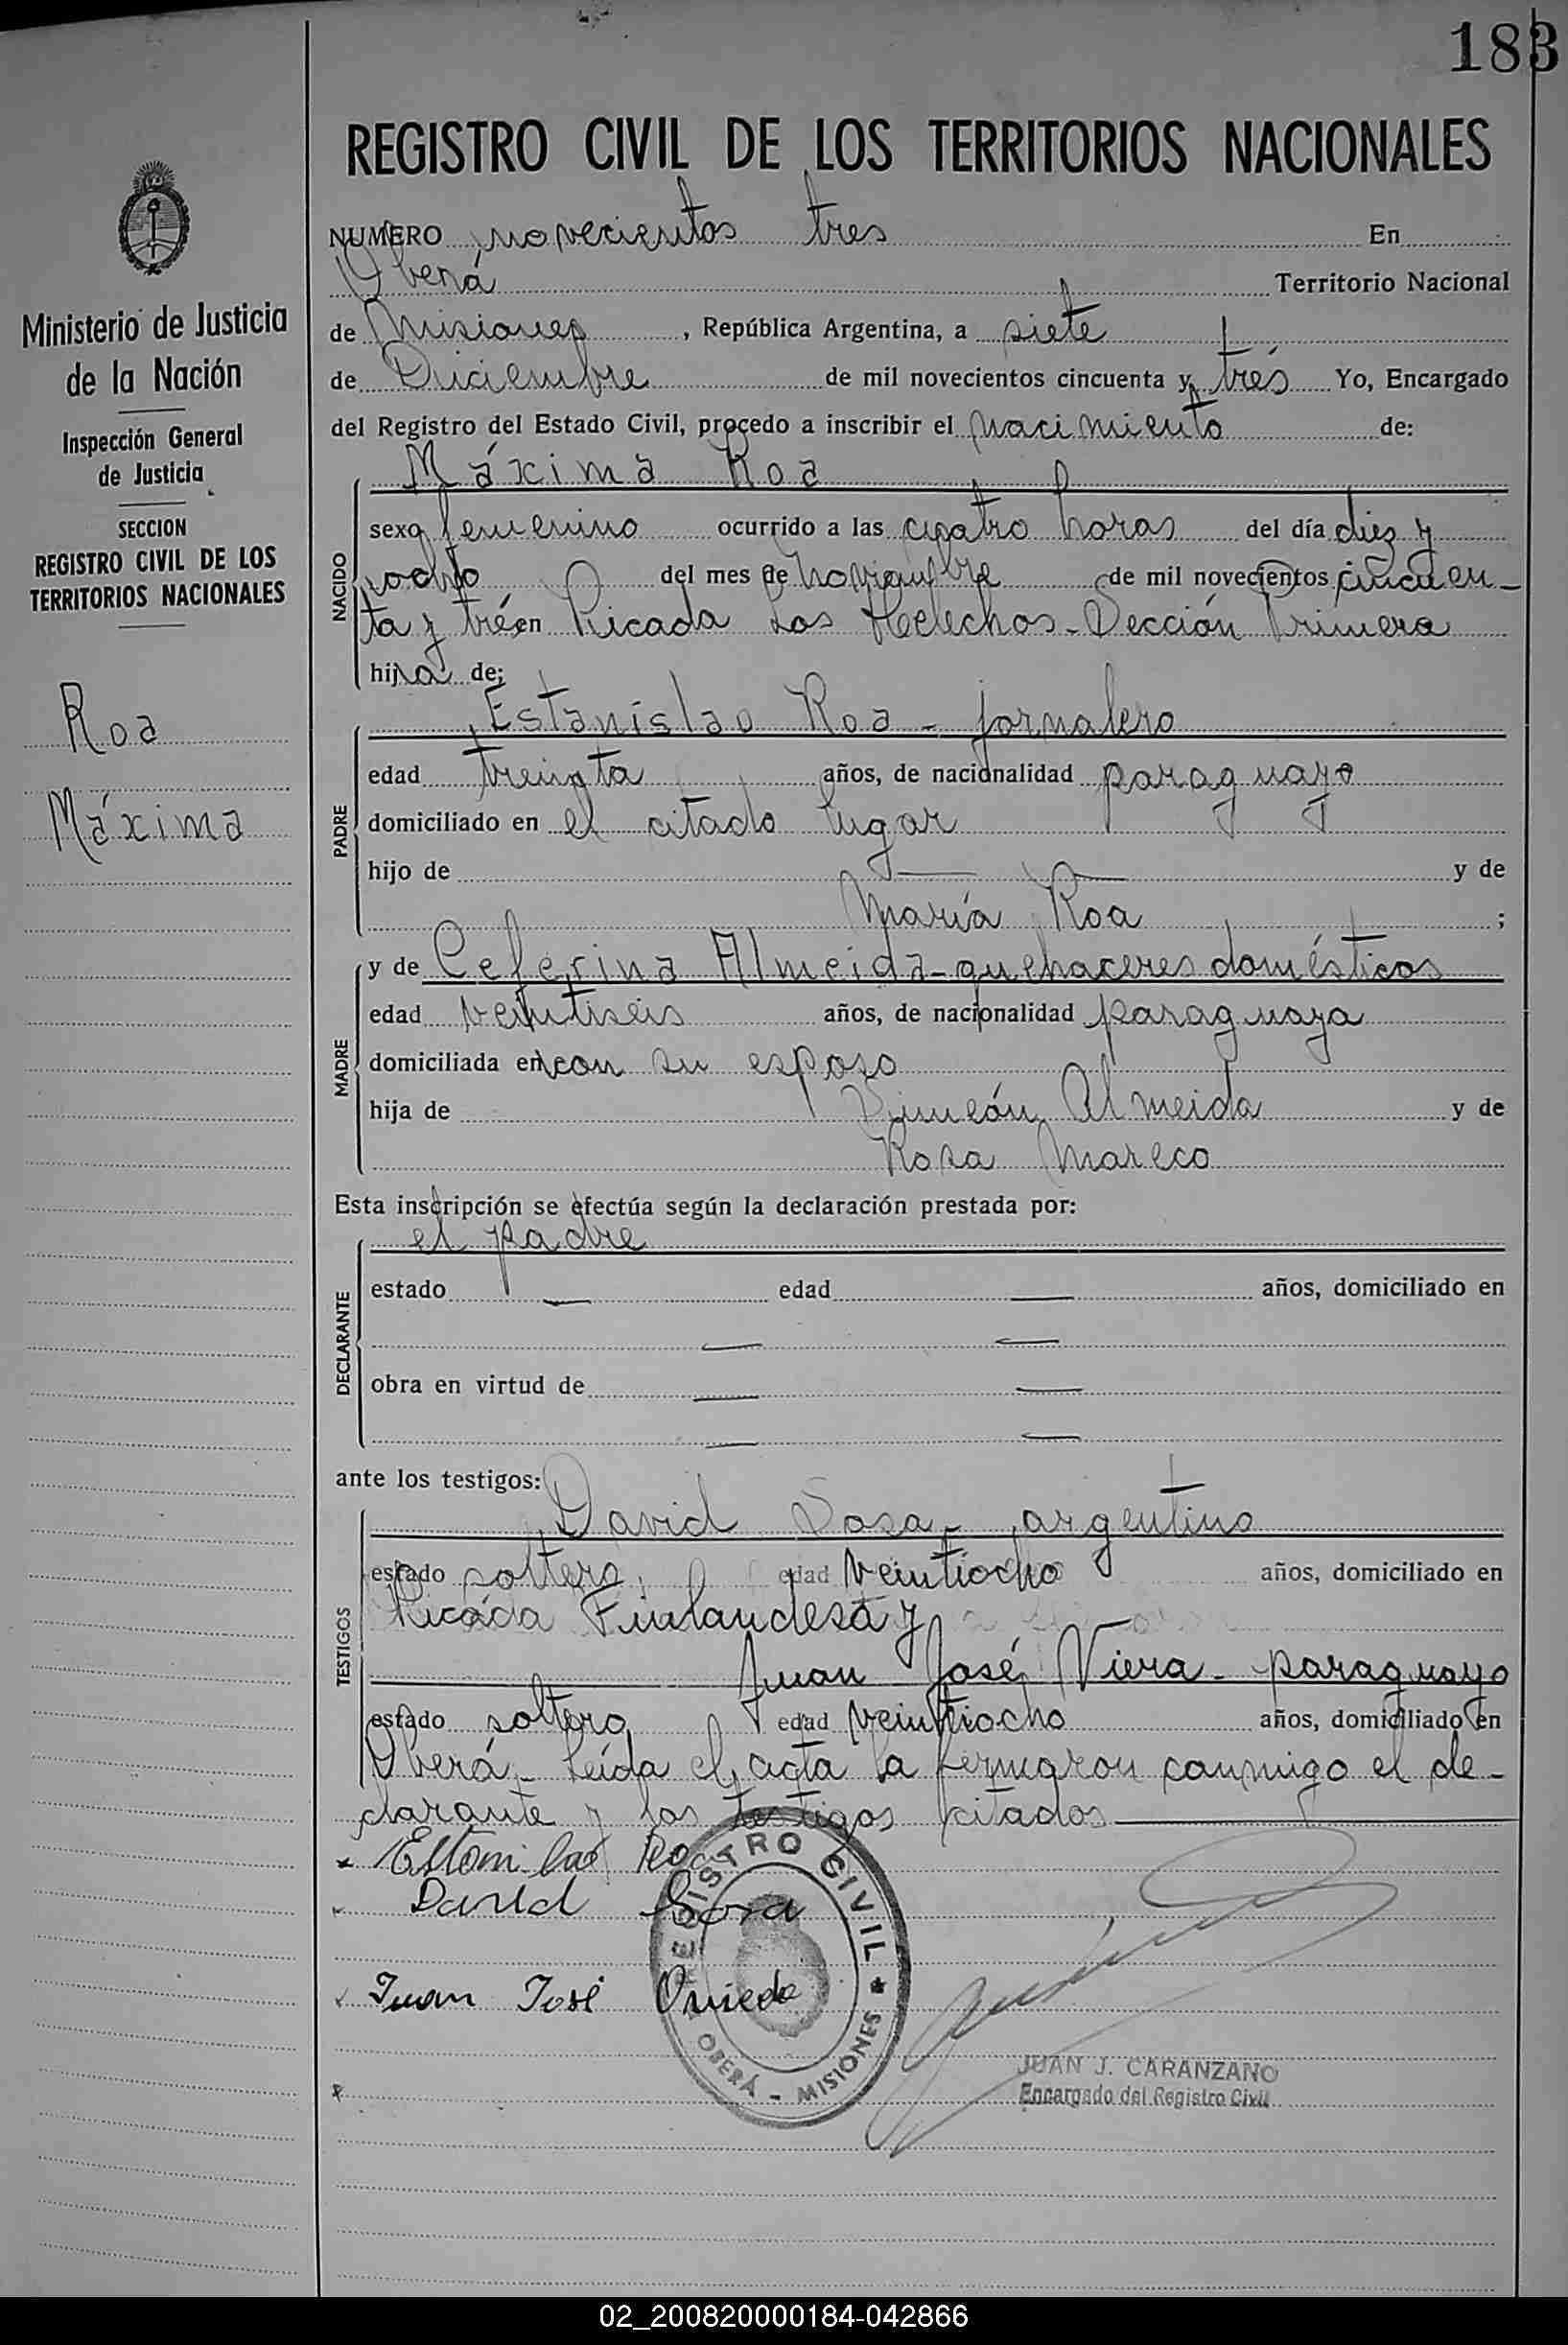 183
REGISTRO CIVIL DE LOS TERRITORIOS NACIONALES
Ministerio de Justicia
de la Nación
Inspección General
de Justicia
SECCION
REGISTRO CIVIL DE LOS
TERRITORIOS NACIONALES
Roa
Máxima
NUMERO novecientos tres En
Oberá Territorio Nacional
de Misiones, República Argentina, a siete
de Diciembre de mil novecientos cincuenta y trés Yo, Encargado
del Registro del Estado Civil, procedo a inscribir el nacimiento de:
Máxima Roa
NACIDO
sexo femenino ocurrido a las cuatro horas del día diez y
ocho del mes de noviembre de mil novecientos cincuen-
ta y trés en Picada Los Helechos - Sección Primera
hija de:
Estanislao Roa - jornalero
PADRE
edad treinta años, de nacionalidad paraguayo
domiciliado en el citado lugar
hijo de — — y de
María Roa ;
MADRE
y de Ceferina Almeida - quehaceres domésticos
edad veintiseis años, de nacionalidad paraguaya
domiciliada en con su esposo
hija de Simeón Almeida y de
Rosa Mareco
Esta inscripción se efectúa según la declaración prestada por:
el padre
DECLARANTE
estado — edad — años, domiciliado en
— —
obra en virtud de — —
— —
ante los testigos:
David Sosa - argentino
TESTIGOS
estado soltero edad veintiocho años, domiciliado en
Picada Finlandesa y
Juan José Viera - paraguayo
estado soltero edad veintiocho años, domiciliado en
Oberá - Leída el acta la firmaron conmigo el de-
clarante y los testigos citados
Estanislao Roa
David Sosa
Juan José Oviedo
REGISTRO CIVIL
OBERÁ - MISIONES
JUAN J. CARANZANO
Encargado del Registro Civil
02_200820000184-042866